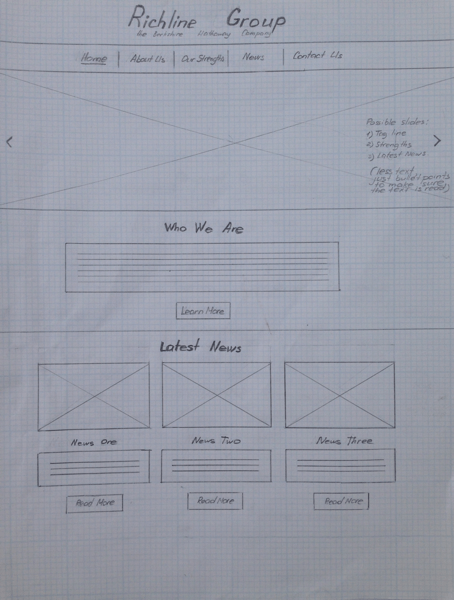 Richline Group
the Berkshire Hathaway Company
Home About Us Our Strengths News Contact Us
Possible slides:
1) Tag line
2) Strengths
3) Latest News
(less text,
just bullet points
to make sure
the text is read)
Who We Are
Learn More
Latest News
News One News Two News Three
Read More Read More Read More